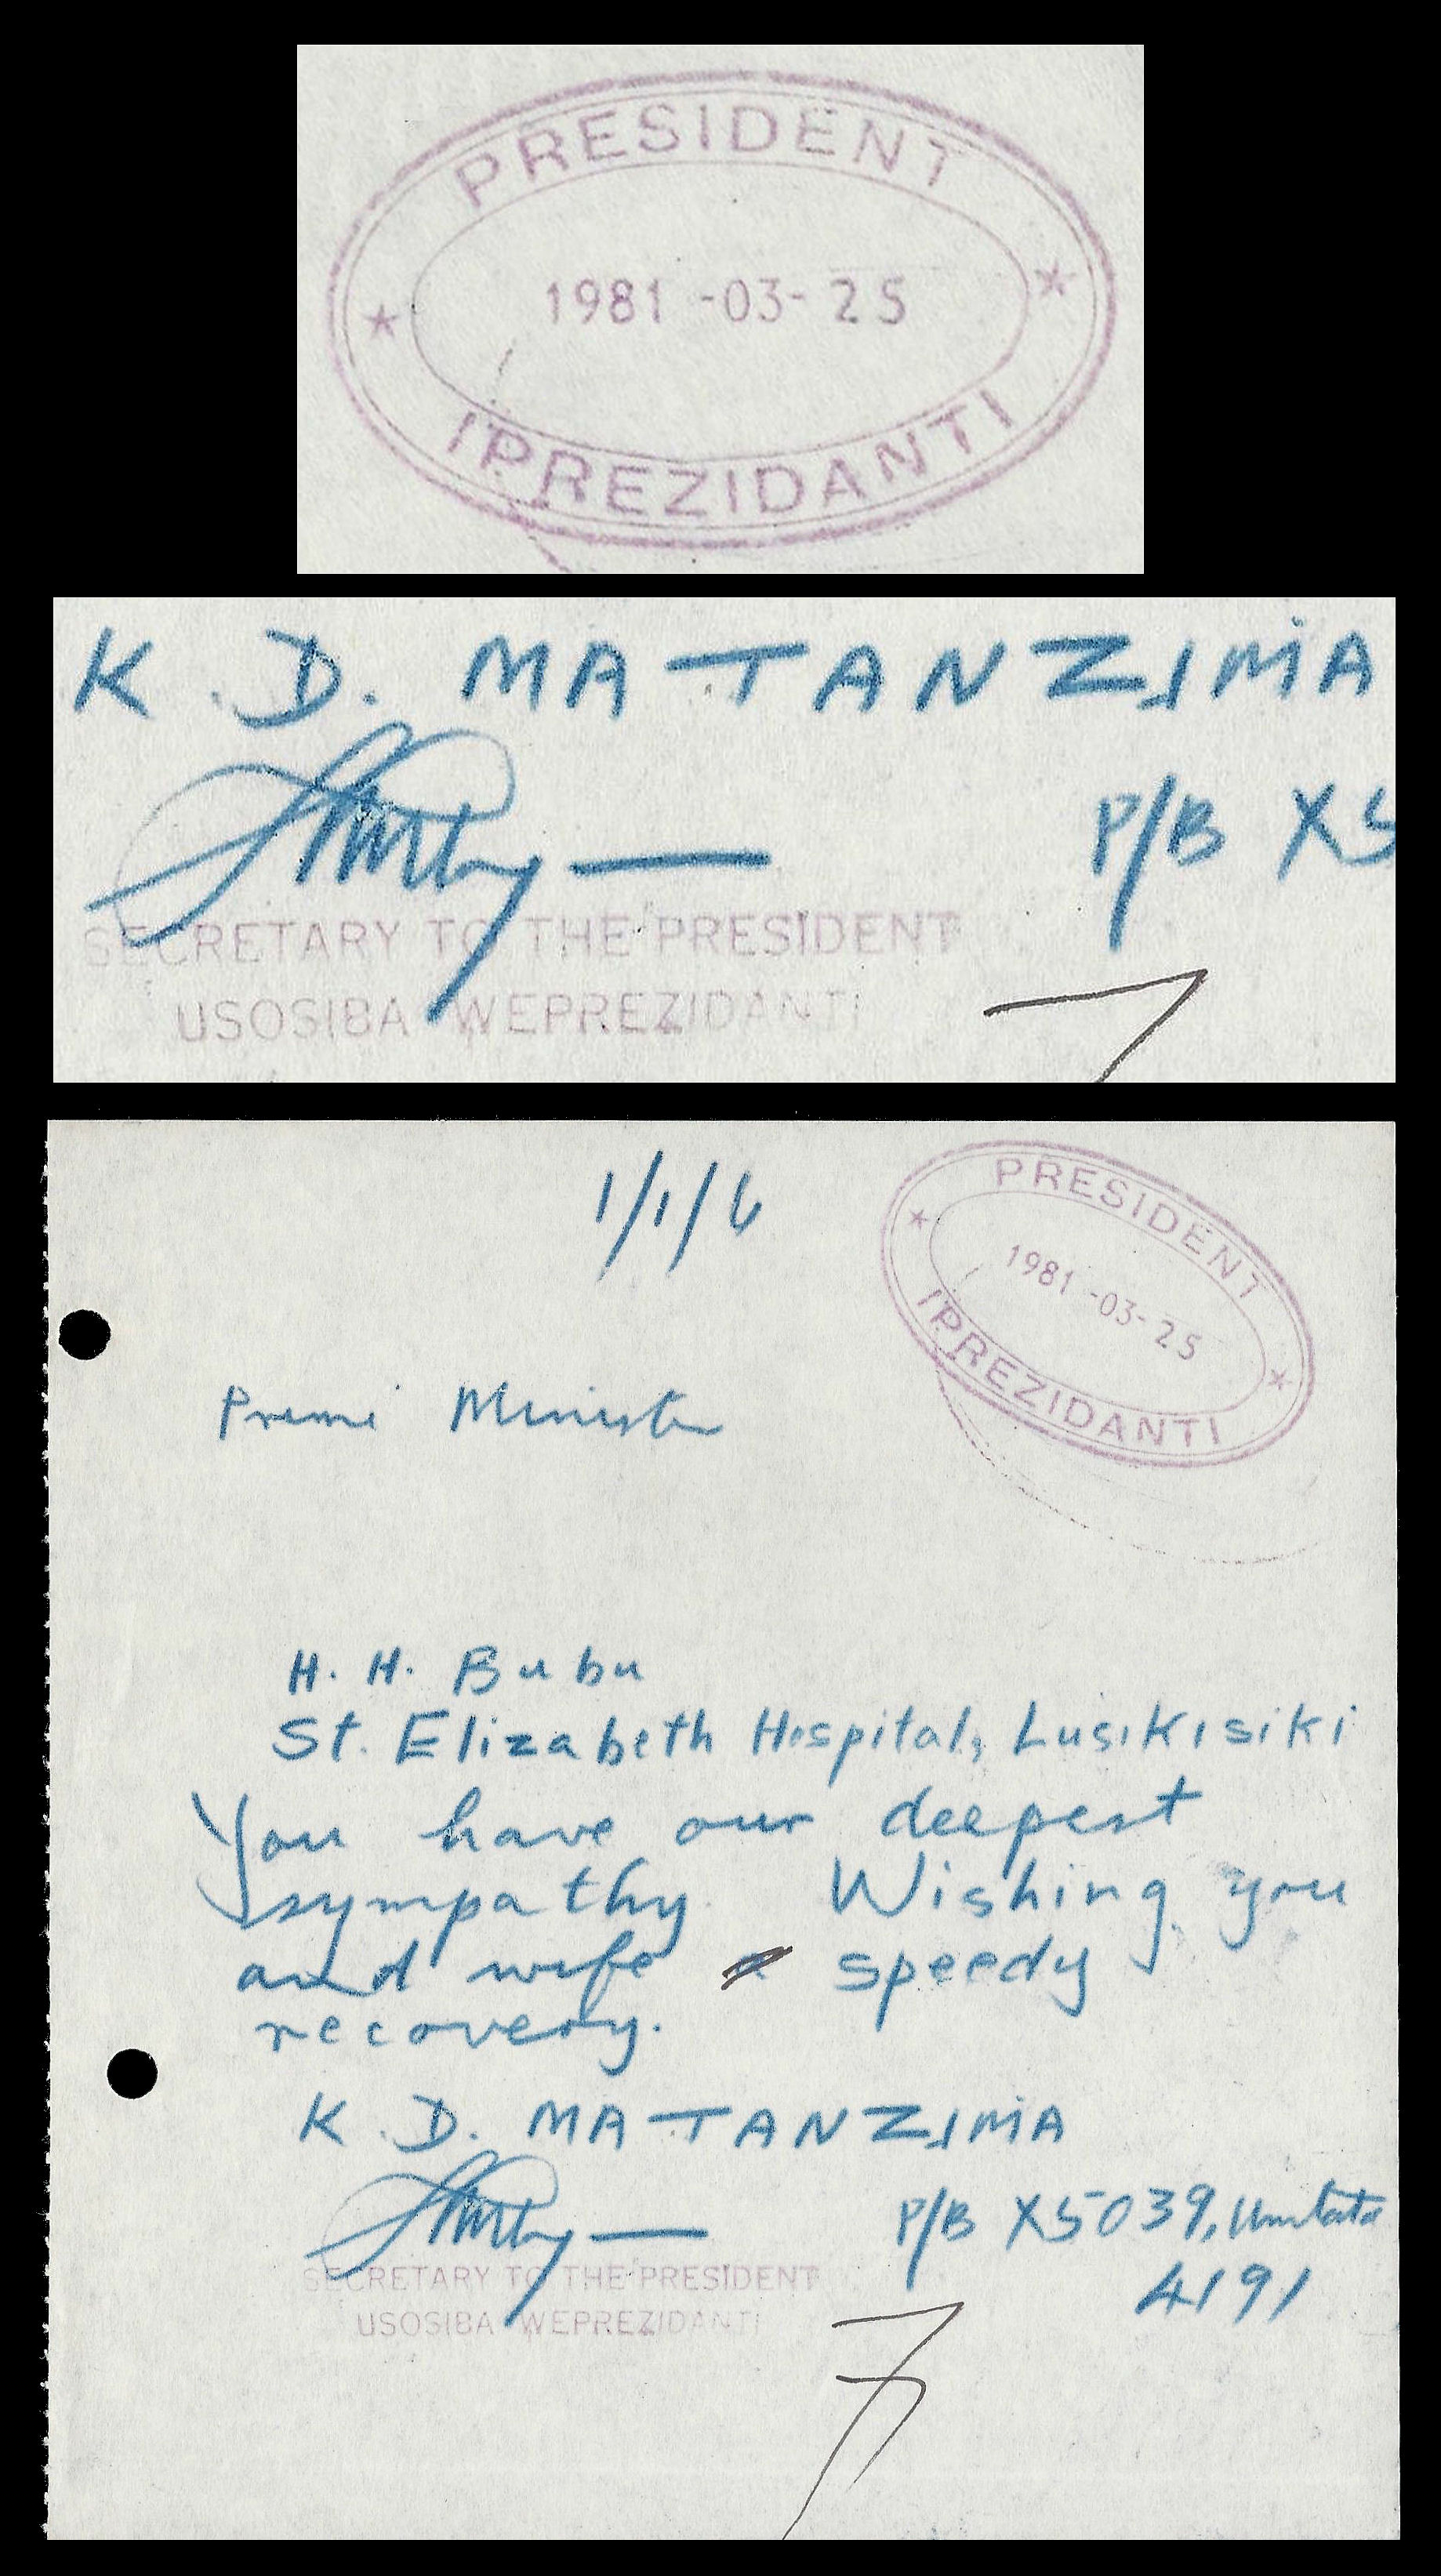 PRESIDENT
1981 -03- 25
IPREZIDANTI
K. D. MATANZIMA
P/B X5
SECRETARY TO THE PRESIDENT
USOSIBA WEPREZIDANTI
1/1/6
PRESIDENT
1981 -03- 25
IPREZIDANTI
Prime Minister
H. H. Bubu
St. Elizabeth Hospital, Lusikisiki
You have our deepest
sympathy. Wishing you
and wife a speedy
recovery.
K. D. MATANZIMA
P/B X5039, Umtata
4191
SECRETARY TO THE PRESIDENT
USOSIBA WEPREZIDANTI